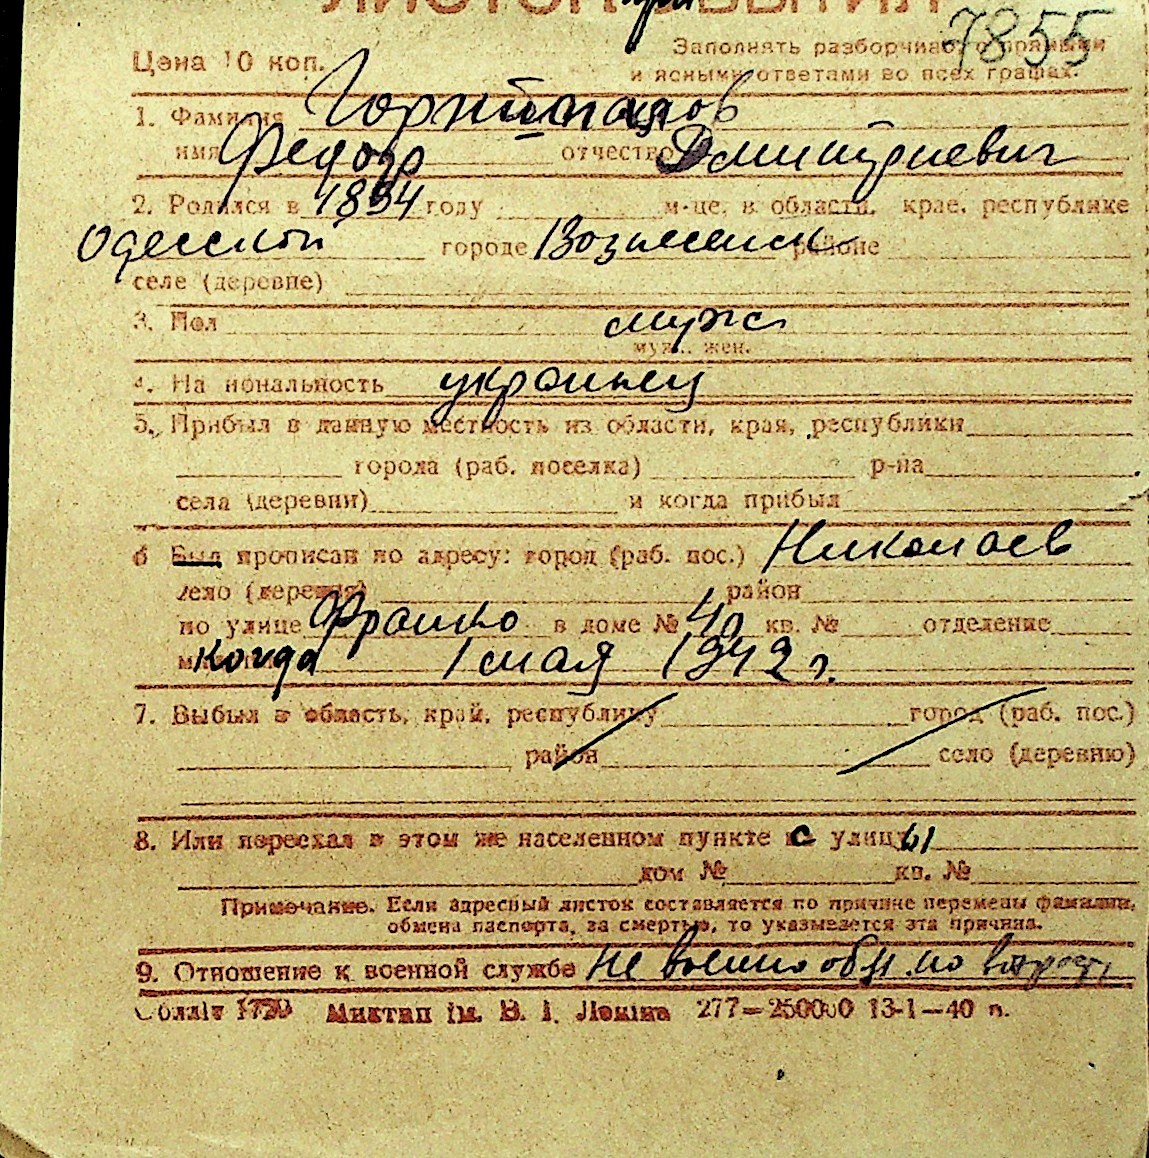 7855
Цена 10 коп.
Заполнять разборчиво, прямыми
и ясными ответами во всех графах.
1. Фамилия
имя Федор отчество Дмитриевич
2. Родился в 1894 году м-це, в области, крае, республике
Одесской городе Вознесенск районе
селе (деревне)
3. Пол муж.
муж. жен.
4. Национальность украинец
5. Прибыл в данную местность из области, края, республики
города (раб. поселка) р-на
села (деревни) и когда прибыл
6 Был прописан по адресу: город (раб. пос.) Николаев
село (деревня) район
по улице Франко в доме № 40 кв. № отделение
когда 1 мая 1942 г.
7. Выбыл в область, край, республику город (раб. пос.)
район село (деревню)
8. Или переехал в этом же населенном пункте с улицы
дом № кв. №
Примечание. Если адресный листок составляется по причине перемены фамилии,
обмена паспорта, за смертью, то указывается эта причина.
9. Отношение к военной службе не военнообяз. по возрасту
Обліт 1720 Миктип ім. В. І. Леніна 277—250000 13-1—40 п.